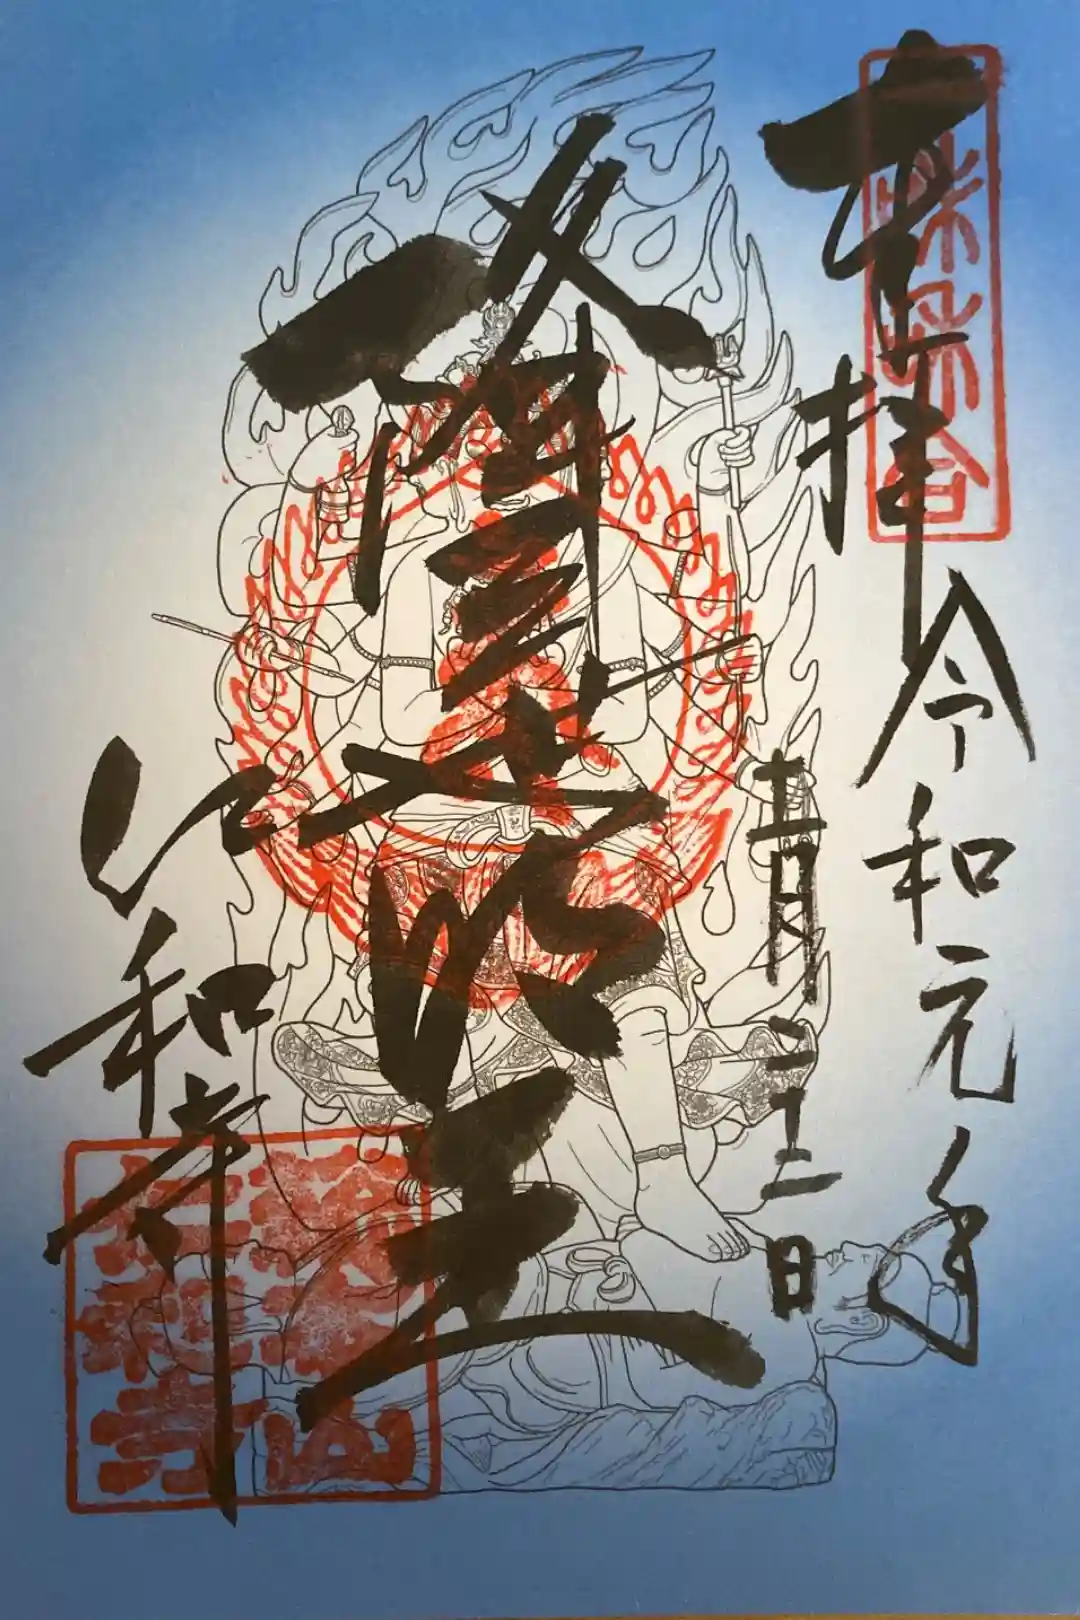 奉拝
令和元年
十一月二十二日
降三世明王
仁和寺
仁和寺